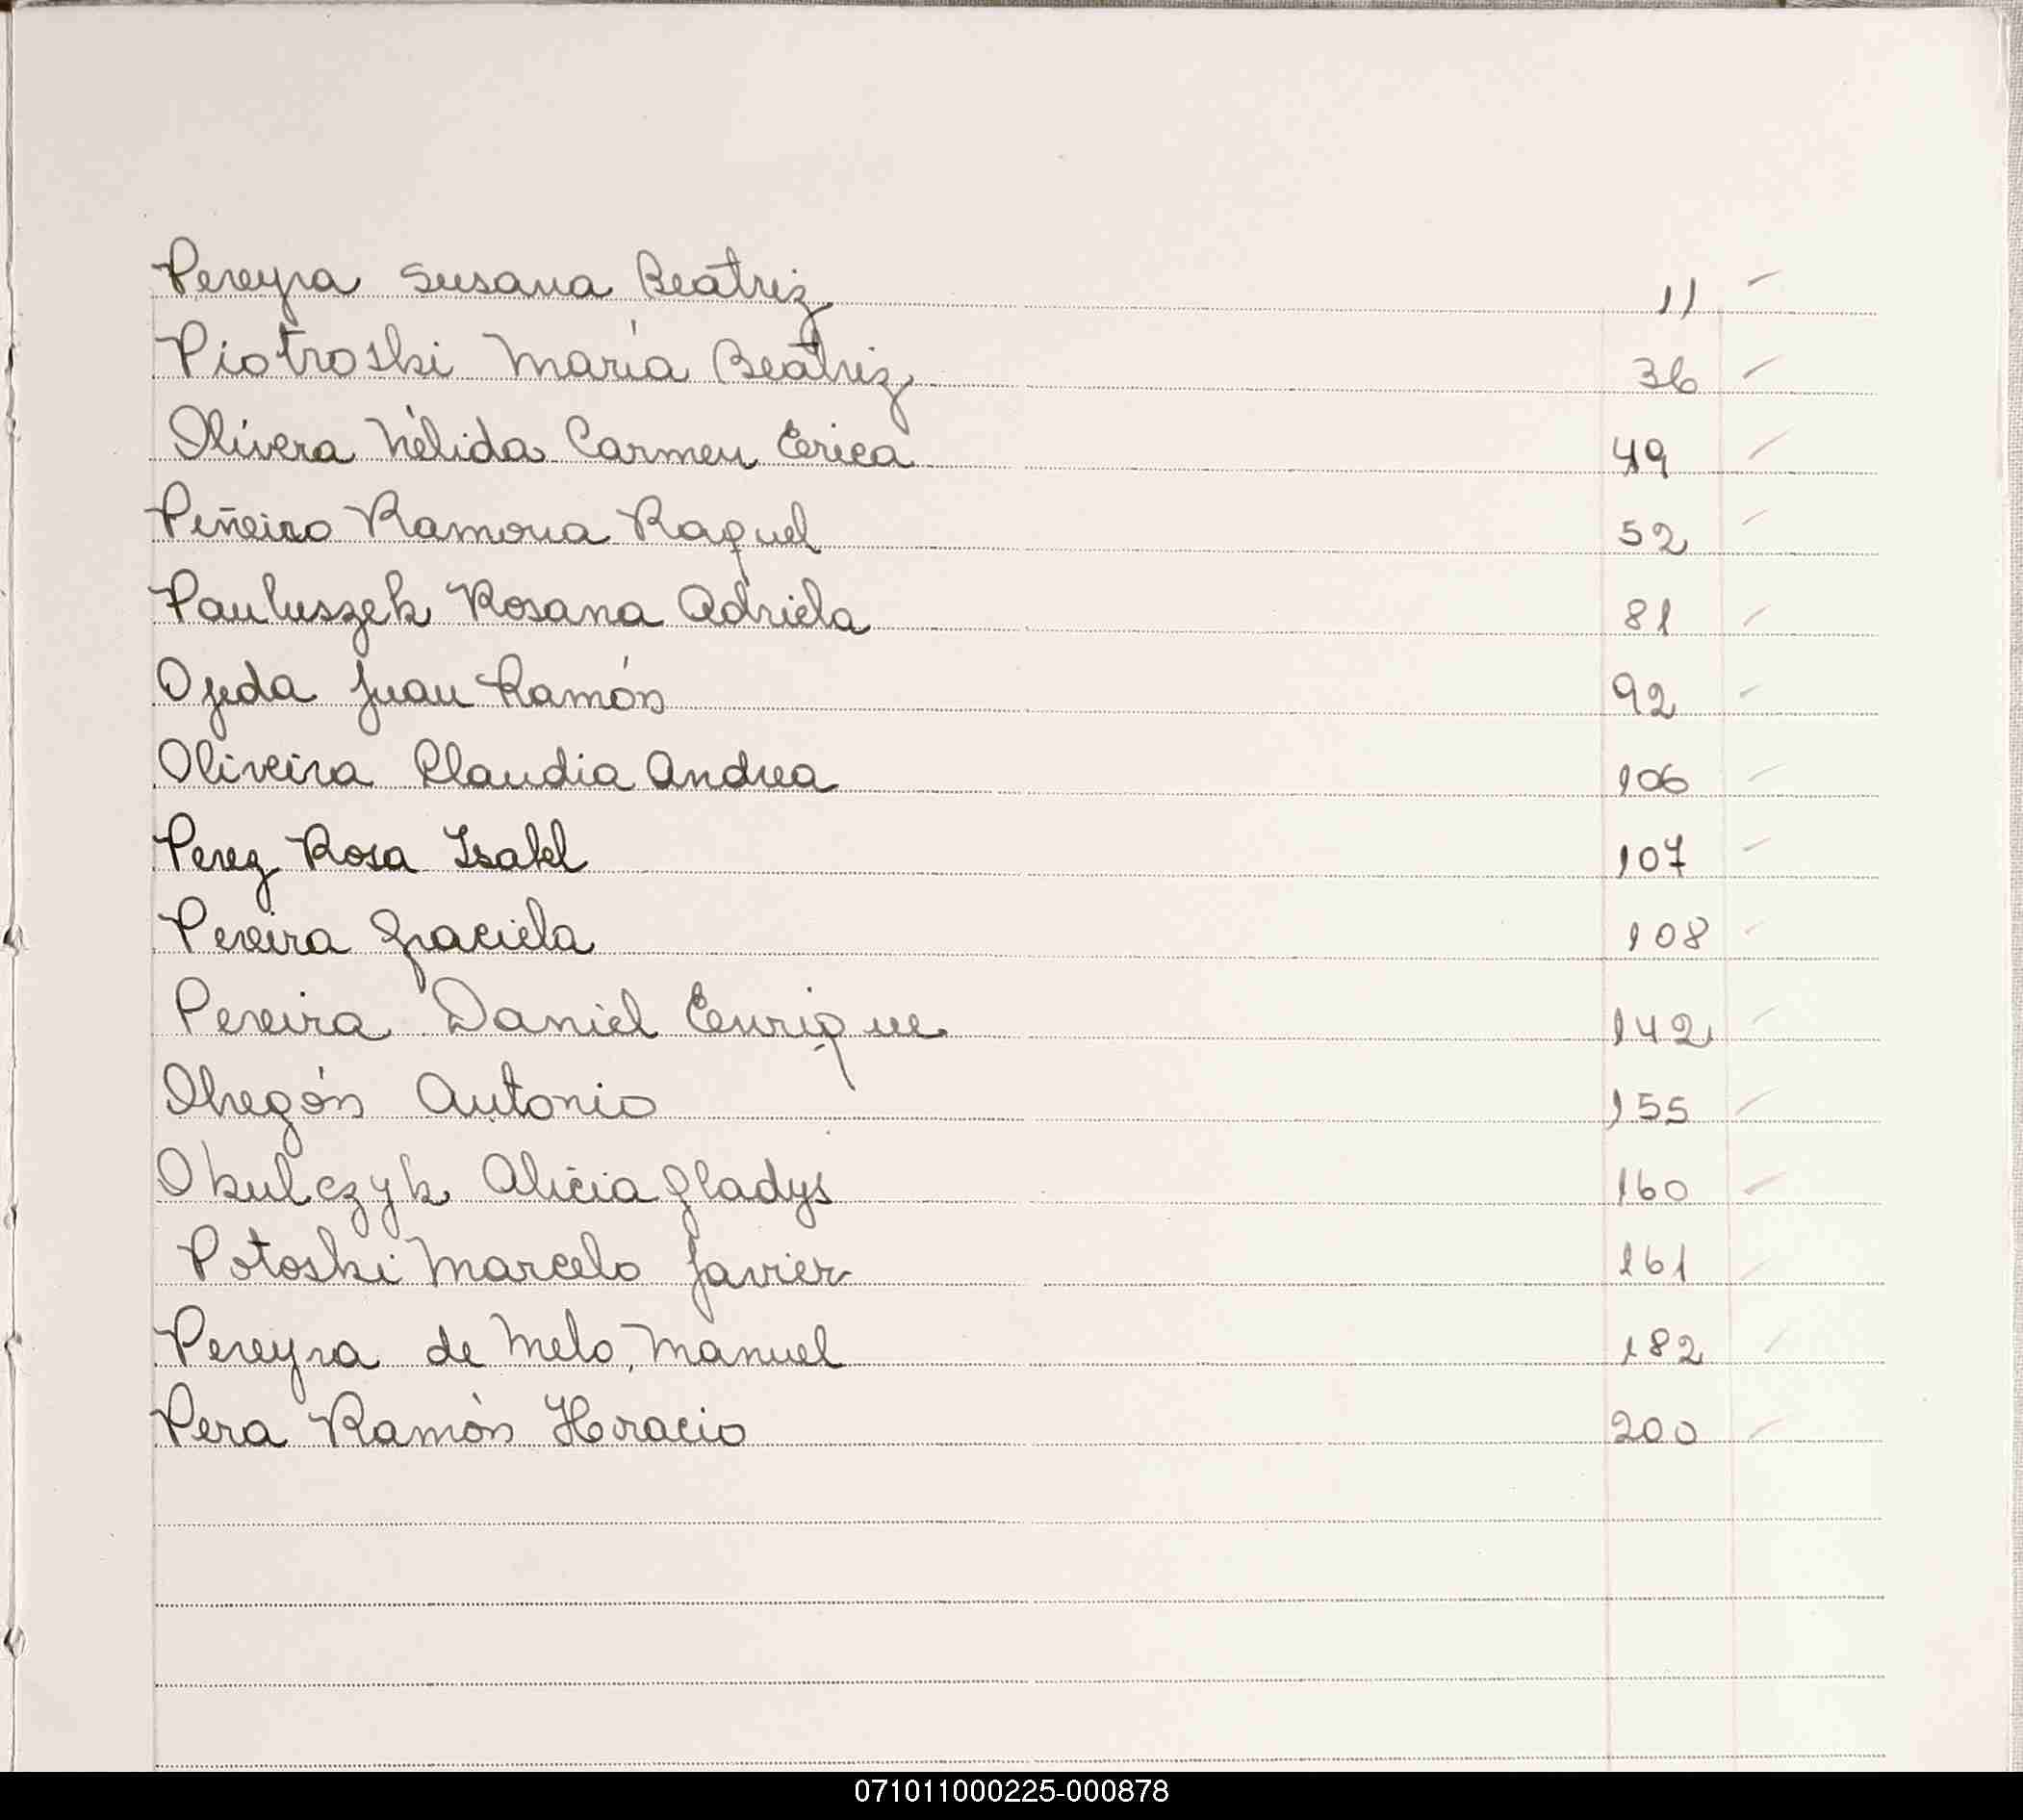 Pereyra Susana Beatriz 11
Piotroski María Beatriz 36
Olivera Nélida Carmen Erica 49
Piñeiro Ramona Raquel 52
Pauluszek Rosana Adriela 81
Ojeda Juan Ramón 92
Oliveira Claudia Andrea 106
Perez Rosa Isabel 107
Pereira Graciela 108
Pereira Daniel Enrique 142
Obregón Antonio 155
Okulczyk Alicia Gladys 160
Potoski Marcelo Javier 161
Pereyra de Melo, Manuel 182
Pera Ramón Horacio 200
071011000225-000878